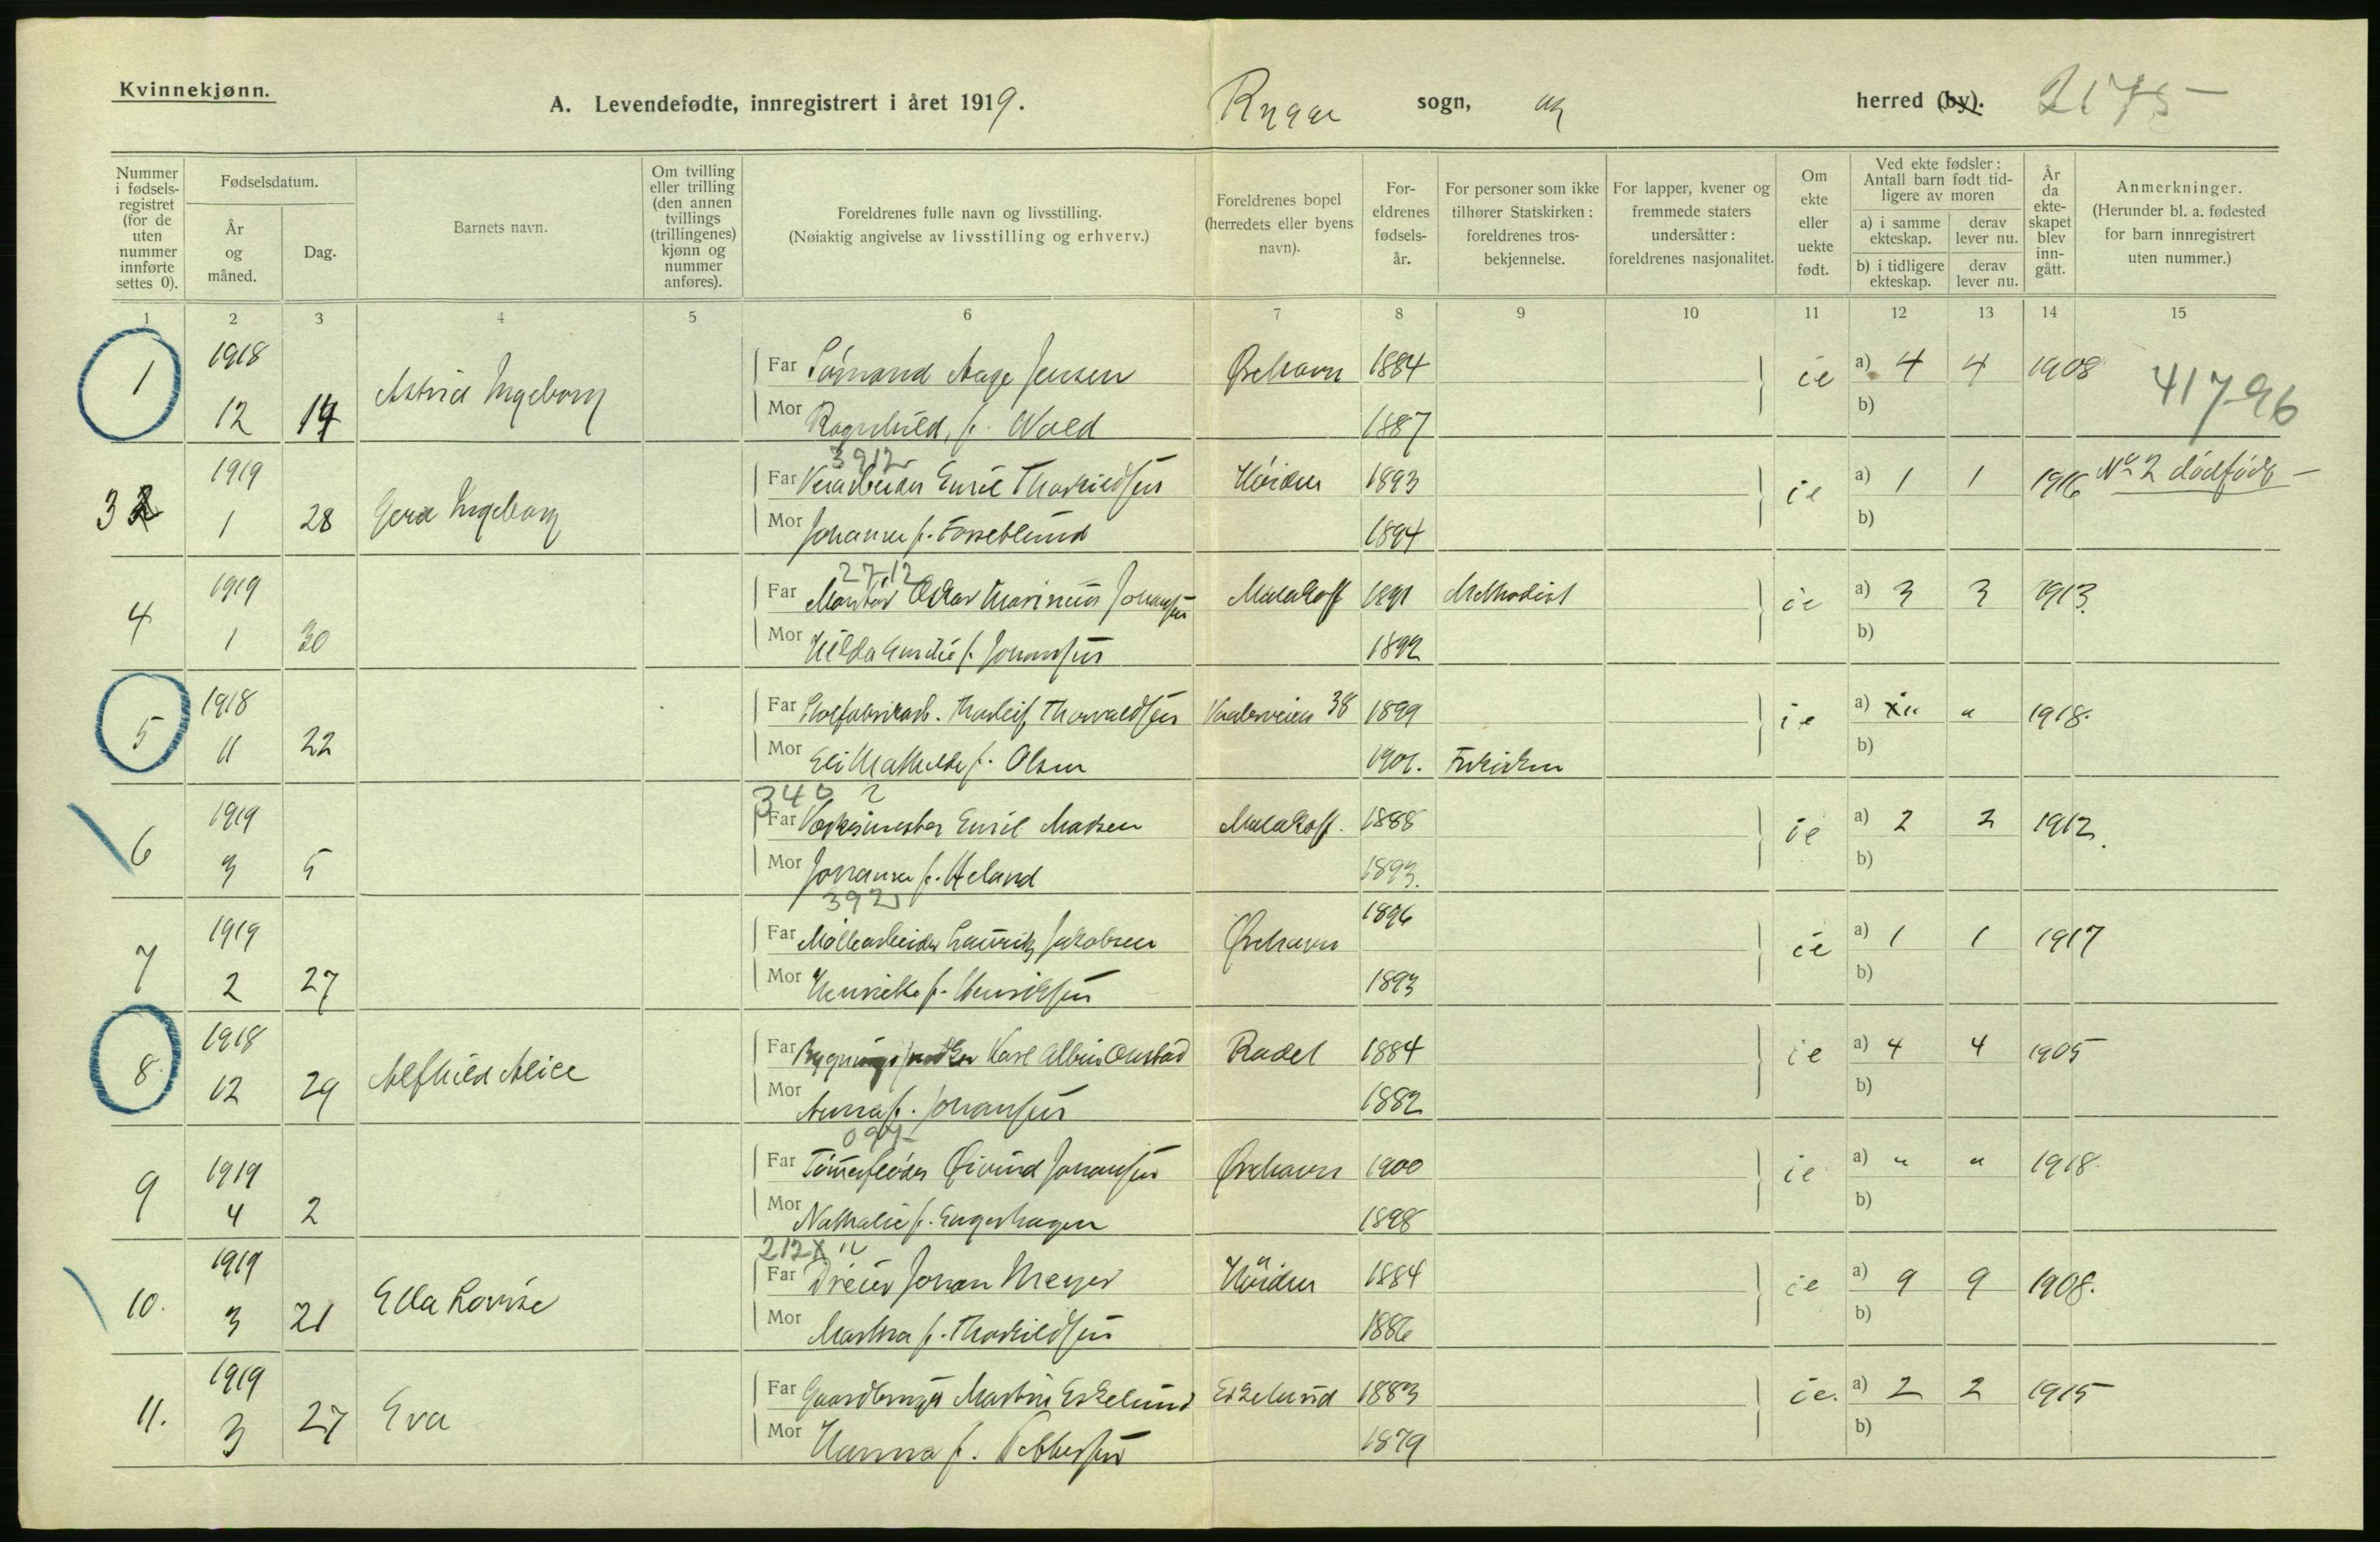 Kvinnekjønn.
A. Levendefødte, innregistrert i året 1919.
Rygge sogn, og herred (by). 2175
Nummer i fødsels-registret (for de uten nummer innførte settes 0).
Fødselsdatum.
År og måned.
Dag.
Barnets navn.
Om tvilling eller trilling (den annen tvillings (trillingenes) kjønn og nummer anføres).
Foreldrenes fulle navn og livsstilling.
(Nøiaktig angivelse av livsstilling og erhverv.)
Foreldrenes bopel (herredets eller byens navn).
For-eldrenes fødsels-år.
For personer som ikke tilhører Statskirken: foreldrenes tros-bekjennelse.
For lapper, kvener og fremmede staters undersåtter: foreldrenes nasjonalitet.
Om ekte eller uekte født.
Ved ekte fødsler: Antall barn født tid-ligere av moren
a) i samme ekteskap.
derav lever nu.
b) i tidligere ekteskap.
derav lever nu.
År da ekte-skapet blev inn-gått.
Anmerkninger.
(Herunder bl. a. fødested for barn innregistrert uten nummer.)
1 2 3 4 5 6 7 8 9 10 11 12 13 14 15
1 1918 Astrid Ingeborg Far Sømand Aage Jensen 1884 a) 4 4 1908 41796
12 14 Mor Ragnhild, f. Wold 1887 b)
3912
3 1919 Gerd Ingeborg Far Emil Thorkildsen Høiden 1893 a) 1 1 1916 No 2 dødfødt
1 28 Mor Johanne f. Fosseblund 1894 b)
2712
4 1919 Far Montør Oskar Marinius Johansen Malakoff 1891 Methodist a) 3 3 1913.
1 30 Mor Hilda Emilie f. Johansen 1892 b)
5 1918 Far Thorleif Thorvaldsen Vaalerveien 38 1899 a) " " 1918.
11 22 Mor Eli Mathilde f. Olsen 1901. Frikirken b)
340 2
6 1919 Far Emil Madsen Malakoff. 1888 a) 2 2 1912.
3 5 Mor Johanne f. Heland 1893. b)
392
7 1919 Far Møllearbeider Lauritz Jakobsen 1896 a) 1 1 1917
2 27 Mor Henriette f. Henriksen 1893 b)
8. 1918 Alfhild Alice Far Karl Albin Onstad Radel 1884 a) 4 4 1905
12 29 Mor Anna f. Johansen 1882 b)
9 1919 Far Tømmerfløder Øivind Johansen 1900 a) " " 1918.
4 2 Mor Nathalie f. Engerhagen 1898 b)
212 x "
10. 1919 Ella Lovise Far Dreier Johan Meyer Høiden 1884 a) 9 9 1908.
3 21 Mor Martha f. Thorkildsen 1886 b)
11. 1919 Eva Far Gaardbruger Martin Eskelund Eskelund 1883 a) 2 2 1915
3 27 Mor Hanna f. Pettersen 1879 b)